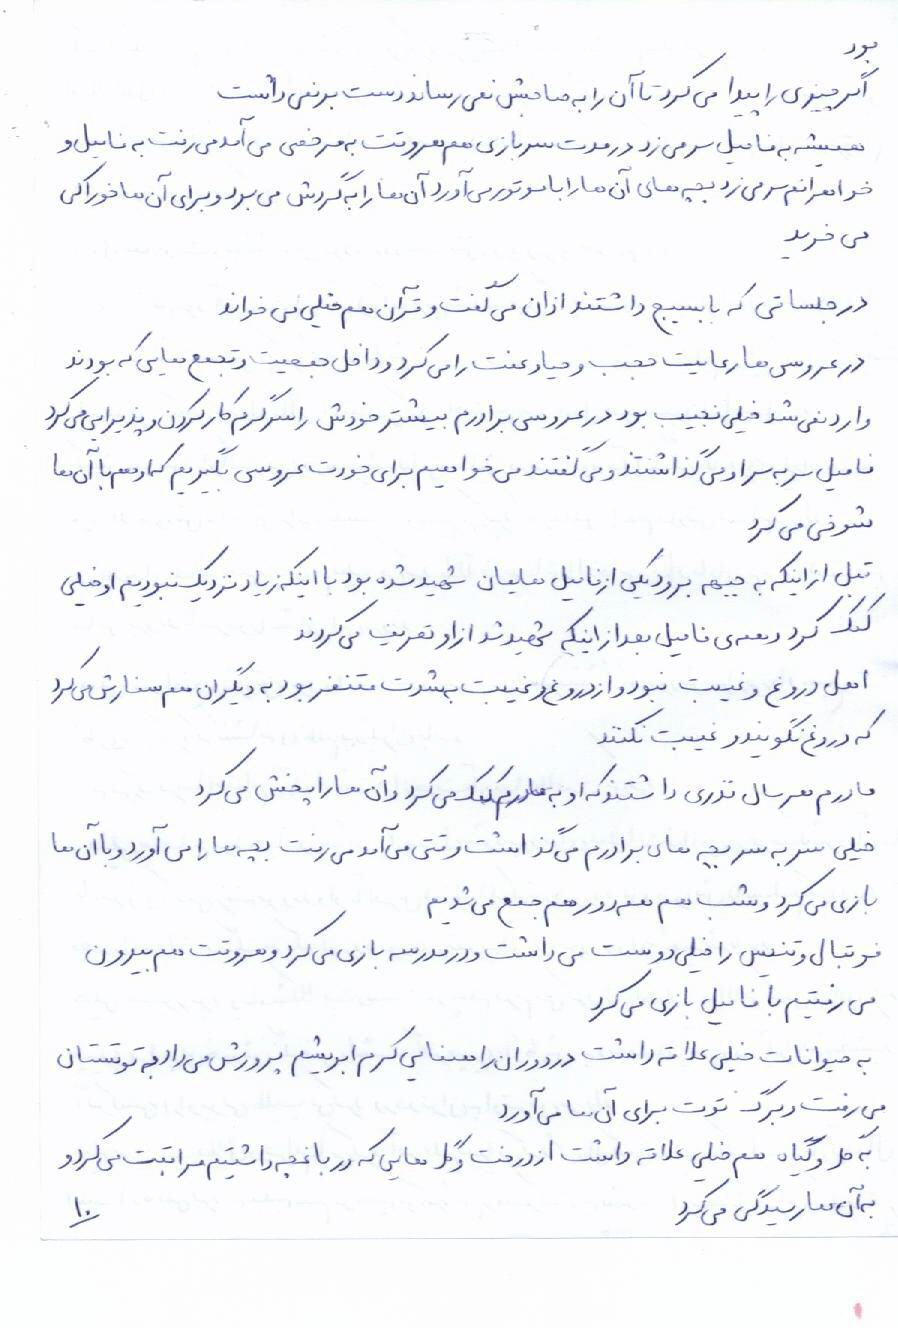 بود
اگر چیزی را پیدا می کرد تا آن را به صاحبش نمی رساند دست بر نمی داشت
همیشه به فامیل سر می زد در مدت سربازی هم هر وقت به مرخصی می آمد می رفت به فامیل و
خواهرانم سر می زد بچه های آن ها را با موتور می آورد آن ها را به گردش می برد و برای آن ها خوراکی
می خرید
در جلساتی که با بسیج داشتند اذان می گفت و قرآن هم خیلی می خواند
در عروسی ها رعایت حجب و حیا و عفت را می کرد و داخل جمعیت و تجمع هایی که بودند
وارد نمی شد خیلی نجیب بود در عروسی برادرم بیشتر خودش را سرگرم کار کردن و پذیرایی می کرد
فامیل سر به سر او می گذاشتند و می گفتند می خواهیم برای خودت عروسی بگیریم که او هم با آن ها
شوخی می کرد
قبل از اینکه به جبهه برود یکی از فامیل هایمان شهید شده بود با اینکه زیاد نزدیک نبودیم او خیلی
کمک کرد و همه ی فامیل بعد از اینکه شهید شد از او تعریف می کردند
اهل دروغ و غیبت نبود و از دروغ و غیبت به شدت متنفر بود به دیگران هم سفارش می کرد
که دروغ نگویند و غیبت نکنند
مادرم هر سال نذری داشتند که او به مادرم کمک می کرد و آن ها را پخش می کرد
خیلی سر به سر بچه های برادرم می گذاشت وقتی می آمد می رفت بچه ها را می آورد و با آن ها
بازی می کرد و شب هم همه دور هم جمع می شدیم
فوتبال و تنیس را خیلی دوست می داشت و در مدرسه بازی می کرد و هر وقت هم بیرون
می رفتیم با فامیل بازی می کرد
به حیوانات خیلی علاقه داشت در دوران راهنمایی کرم ابریشم پرورش می داد به توتستان
می رفت و برگ توت برای آن ها می آورد
به گل و گیاه هم خیلی علاقه داشت از درخت و گل هایی که در باغچه داشتیم مراقبت می کرد و
به آن ها رسیدگی می کرد
۱۰